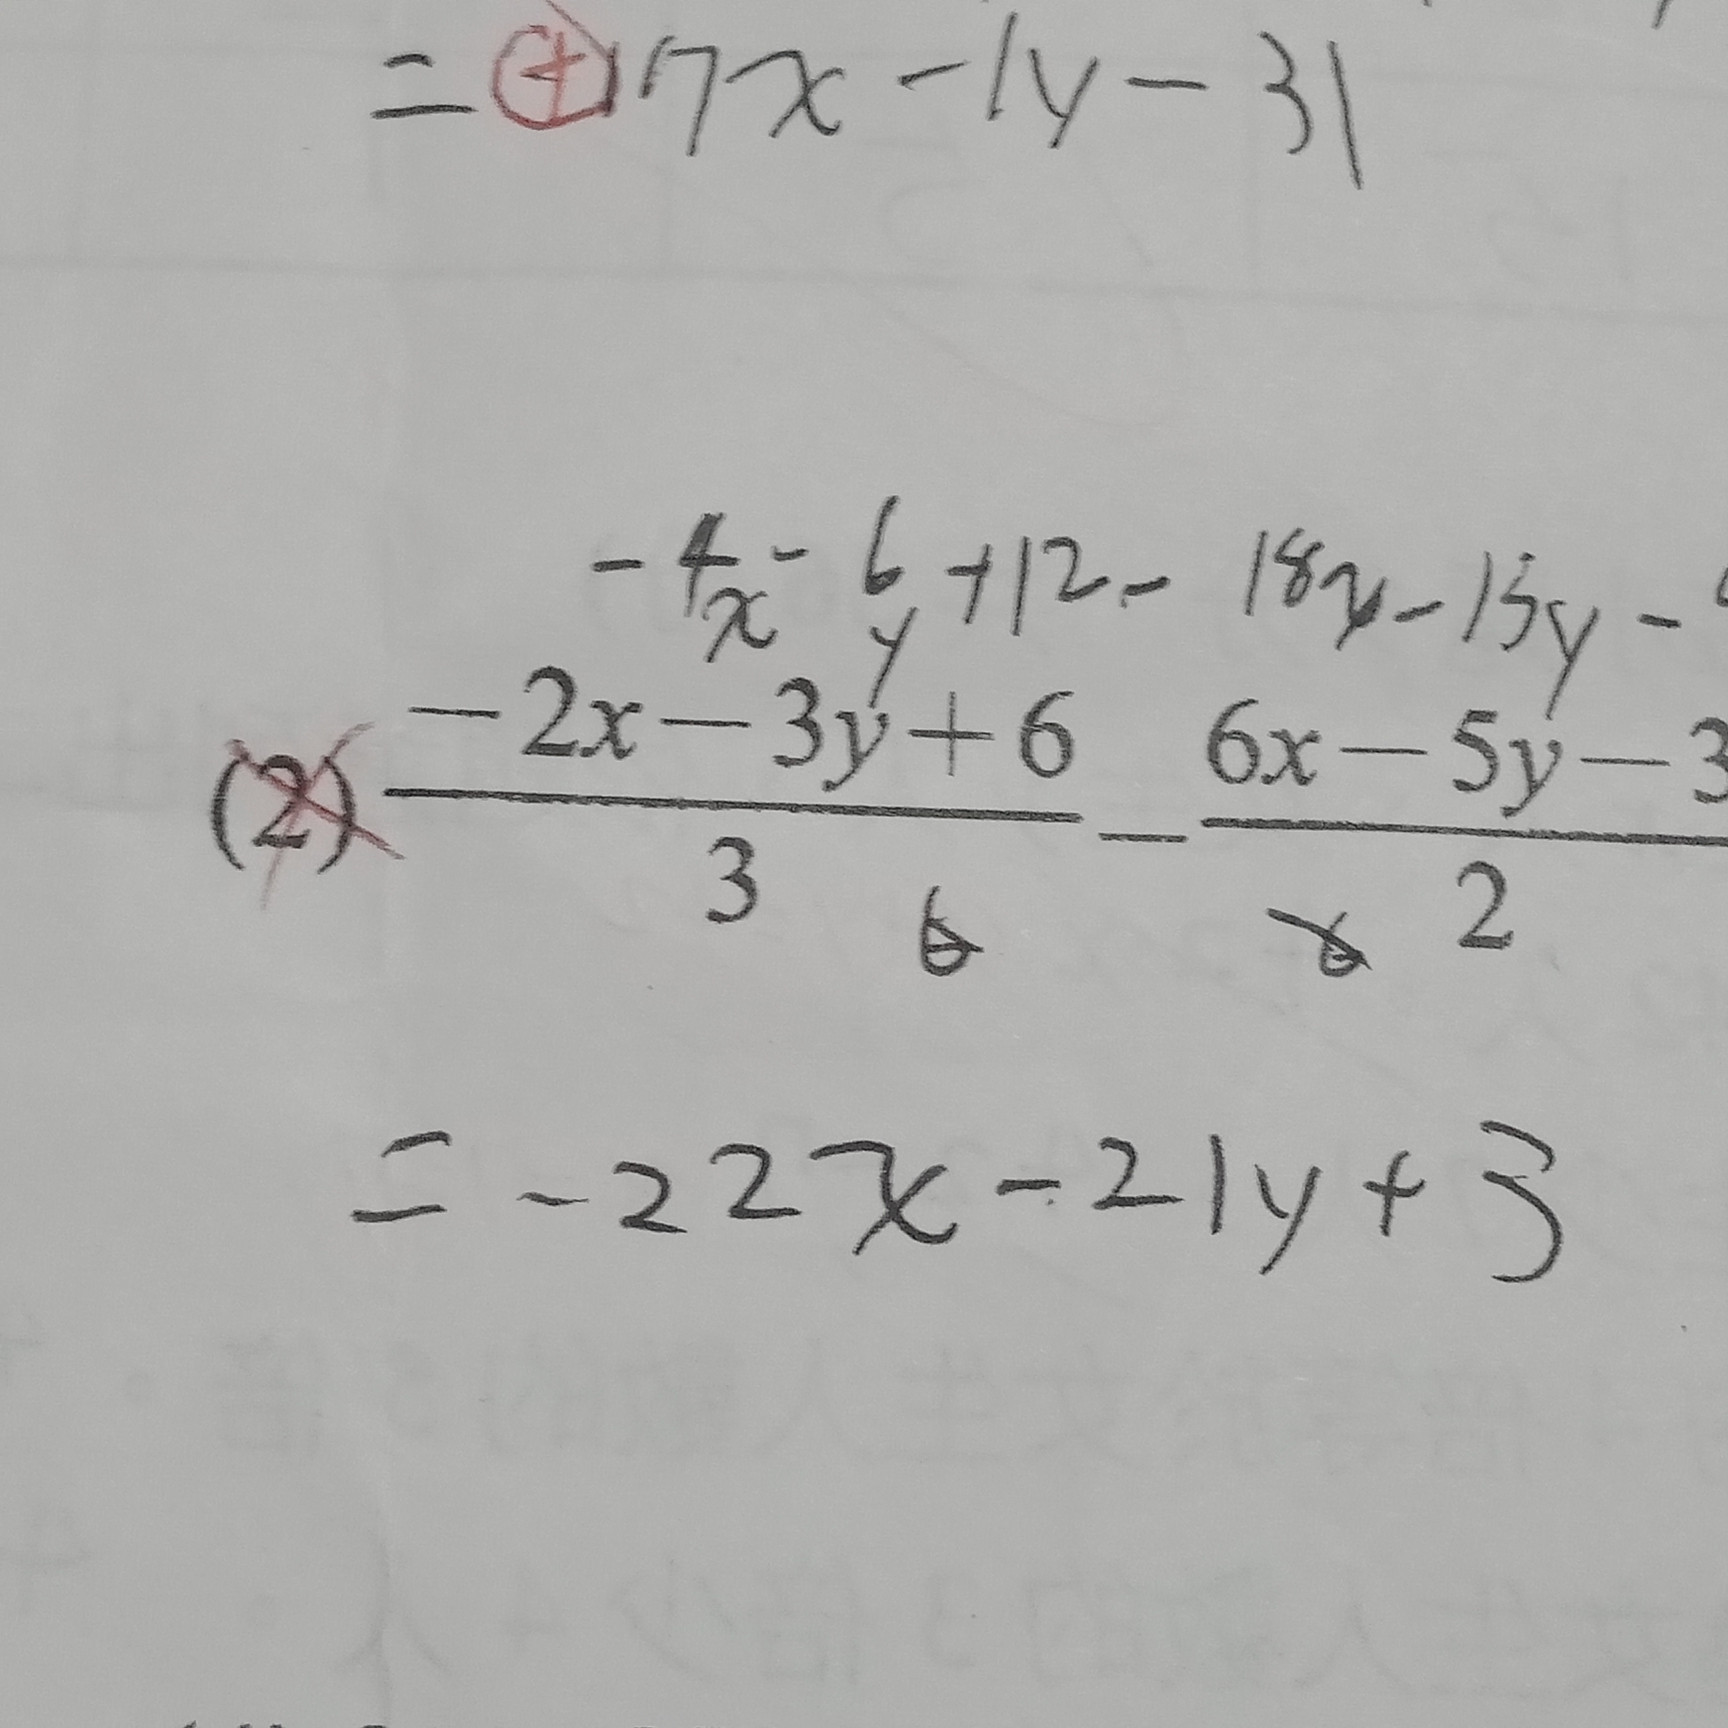 = + 17x - 1y - 31
-4x - 6y + 12 - 18x - 15y -
(2) \frac{-2x-3y+6}{3} - \frac{6x-5y-3}{2}
6 6
= -22x - 21y + 3